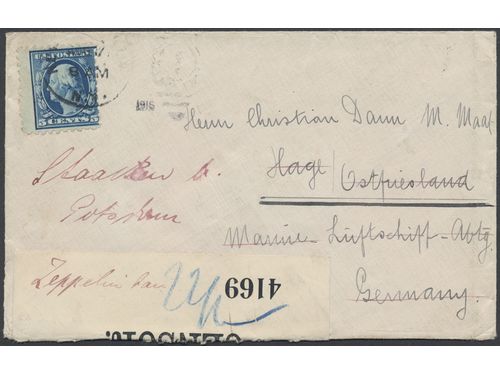 U.S. POSTAGE
5 CENTS 5
8 AM
N.D.
1915
Herrn Christian Dann M. Maat
Hage Ostfriesland
Staaken b.
Potsdam
Marine-Luftschiff-Abtg.
Germany.
Zeppelin
4169